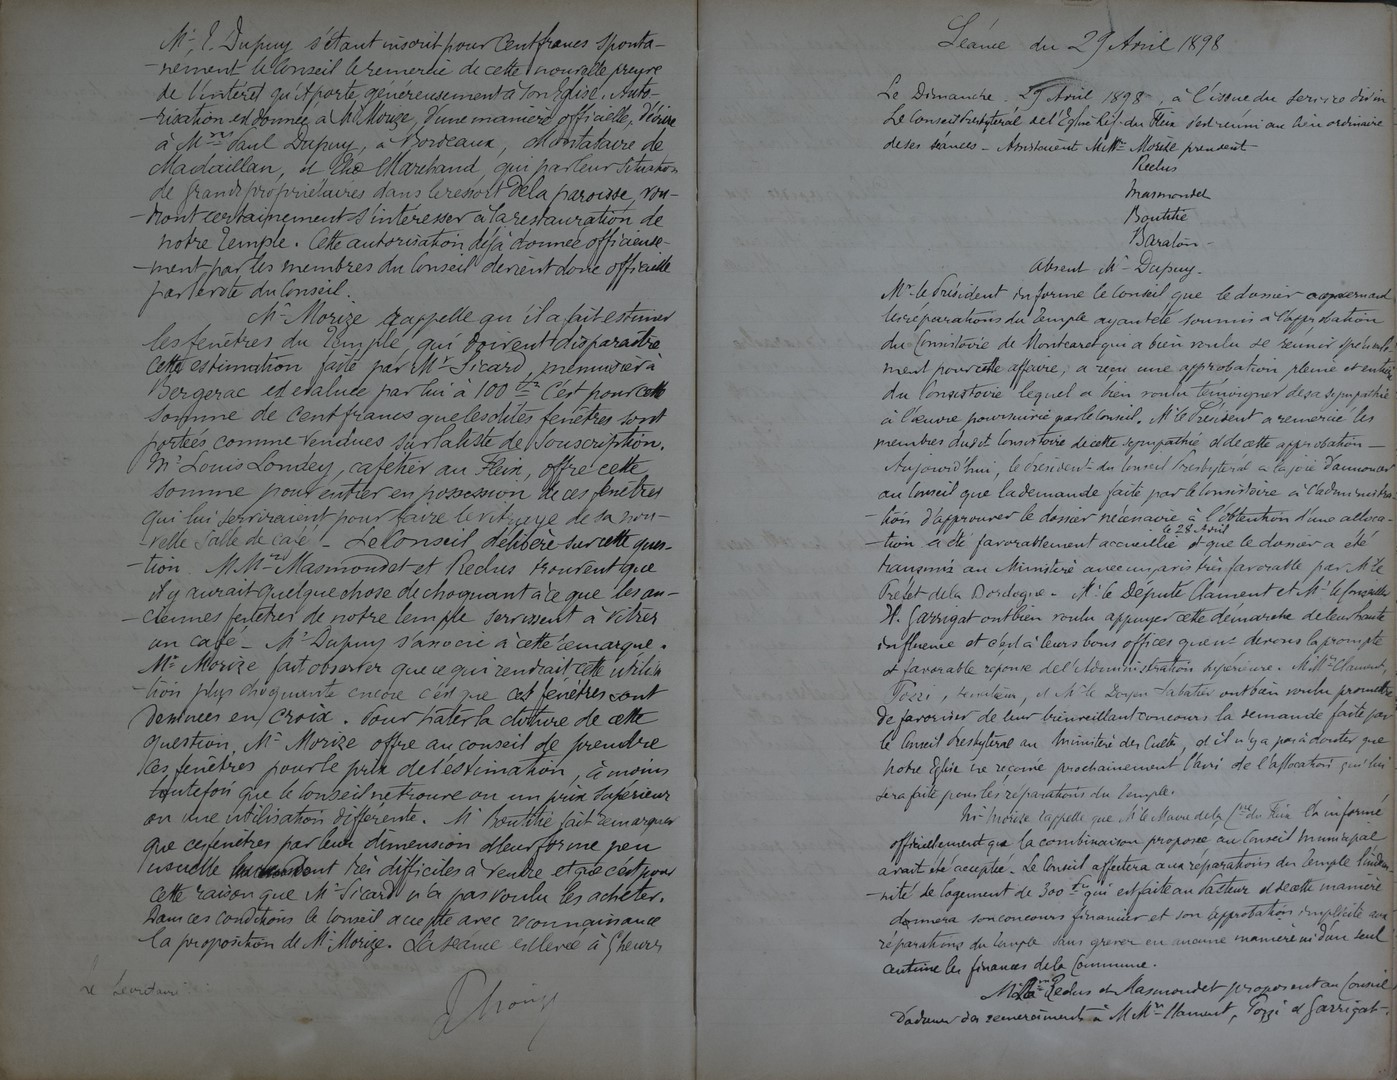 Mr. E. Dupuy s'étant inscrit pour cent francs sponta-
-nément le Conseil le remercie de cette nouvelle preuve
de l'intérêt qu'il porte généreusement à son Eglise. Auto-
-risation est donnée à Mr Morize, d'une manière officielle, d'écrire
à Mme Paul Dupuy, à Bordeaux, Montataire de
Madaillan, et Marchand, qui par leur situation
de grands propriétaires dans le ressort de la paroisse, vou-
-dront certainement s'intéresser à la restauration de
notre Temple. Cette autorisation déjà donnée officieuse-
-ment par les membres du Conseil devient donc officielle
par le vote du Conseil.
Mr Morize rappelle qu'il a fait estimer
les fenêtres du Temple qui doivent disparaître
cette estimation faite par Mr Sicard, menuisier à
Bergerac est évaluée par lui à 100 frs C'est pour cette
somme de cent francs que lesdites fenêtres sont
portées comme vendues sur la liste de Souscription.
Mr Louis Londey, cafetier au Fleix, offre cette
somme pour entrer en possession de ces fenêtres
qui lui serviraient pour faire le vitrage de sa nou-
-velle salle de café - Le Conseil délibère sur cette ques-
-tion. MMrs Masmondet et Reclus trouvent que
il y aurait quelque chose de choquant à ce que les an-
-ciennes fenêtres de notre temple servissent à vitrer
un café - Mr Dupuy s'associe à cette remarque.
Mr Morize fait observer que ce qui rendrait cette utilisa-
-tion plus choquante encore c'est que ces fenêtres sont
dessinées en croix. Pour hâter la clôture de cette
question, Mr Morize offre au conseil de prendre
ces fenêtres pour le prix de l'estimation, à moins
toutefois que le Conseil ne trouve ou un prix supérieur
ou une utilisation différente. Mr Boutitié fait remarquer
que ces fenêtres par leur dimension et leur forme peu
usuelle sont très difficiles à vendre et que c'est pour
cette raison que Mr Sicard n'a pas voulu les acheter.
Dans ces conditions le Conseil accepte avec reconnaissance
la proposition de Mr Morize. La séance est levée à 5 heures
Le Secrétaire
Séance du 29 Avril 1898
Le Dimanche 29 Avril 1898, à l'issue du service divin
Le Conseil Presbytéral de l'Eglise Ref. du Fleix s'est réuni au lieu ordinaire
de ses séances - Assistaient MMrs Morize président
Reclus
Masmondet
Boutitié
Baraton -
Absent Mr Dupuy.
Mr le Président informe le Conseil que le dossier concernant
les réparations du Temple ayant été soumis à l'approbation
du Consistoire de Montcaret qui a bien voulu se réunir spéciale-
ment pour cette affaire, a reçu une approbation pleine et entière
du Consistoire lequel a bien voulu témoigner de sa sympathie
à l'œuvre poursuivie par le Conseil. Mr le Président a remercié les
membres dudit Consistoire de cette sympathie et de cette approbation -
Aujourd'hui, le Président du Conseil Presbytéral a la joie d'annoncer
au Conseil que la demande faite par le Consistoire à l'administra-
-tion d'approuver le dossier nécessaire à l'obtention d'une alloca-
-tion a été favorablement accueillie le 28 Avril et que le dossier a été
transmis au Ministère avec un avis très favorable par Mr le
Préfet de la Dordogne - Mr le Député Clament et Mr le Conseiller
H. Garrigat ont bien voulu appuyer cette démarche de leur haute
influence et c'est à leurs bons offices que ns devons la prompte
et favorable réponse de l'Administration supérieure. MMrs Clament,
Pozzi, sénateur, et Mr le Doyen Sabatier ont bien voulu promettre
de favoriser de leur bienveillant concours la demande faite par
le Conseil Presbytéral au Ministère des Cultes, et il n'y a pas à douter que
notre Eglise ne reçoive prochainement l'avis de l'allocation qui lui
sera faite pour les réparations du Temple.
Mr Morize rappelle que Mr le Maire de la Cne du Fleix l'a informé
officiellement que la combinaison proposée au Conseil Municipal
avait été acceptée. Le Conseil affectera aux réparations du Temple l'indem-
-nité de logement de 300 frs qui est faite au Pasteur et de cette manière
donnera son concours financier et son approbation implicite aux
réparations du Temple sans grever en aucune manière ni d'un seul
centime les finances de la Commune.
Reclus et Masmondet proposent au Conseil
d'adresser des remerciements à MMrs Clament, Pozzi et Garrigat -